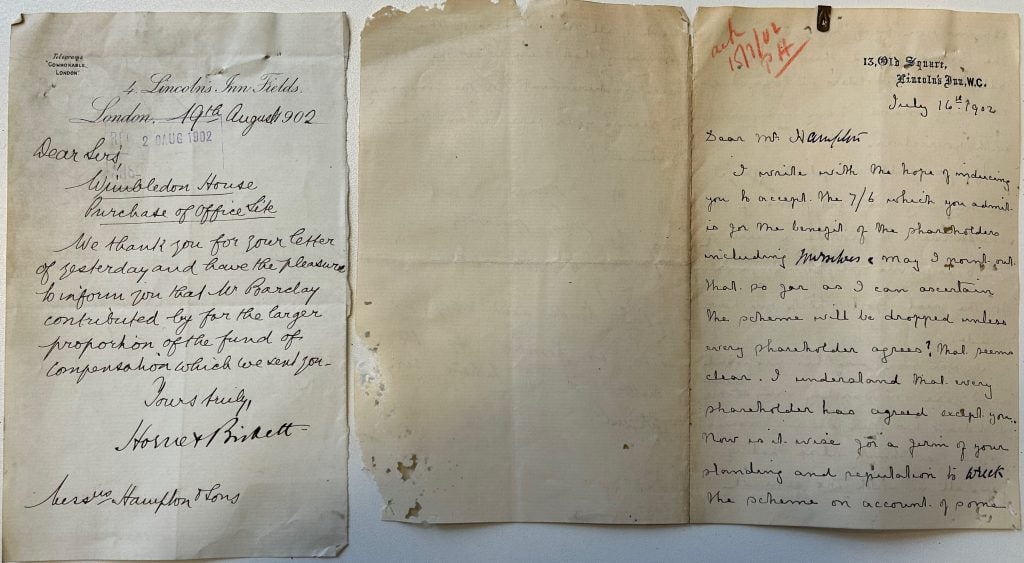 Telegrams
"COMMONABLE,
LONDON"
4, Lincoln's Inn Fields.
London, 19th August 1902
REC 20 AUG 1902
Dear Sirs,
Wimbledon House
Purchase of Office Site
We thank you for your letter
of yesterday and have the pleasure
to inform you that Mr Barclay
contributed by far the larger
proportion of the fund of
compensation which we sent you -
Yours truly,
Horne & Birkett
Messrs Hampton & Sons
ack
13, Old Square,
Lincoln's Inn, W.C.
July 16th 1902
Dear Mr Hampton
I write with the hope of inducing
you to accept the 7/6 which you admit
is for the benefit of the shareholders
including yourselves. May I point out
that so far as I can ascertain
the scheme will be dropped unless
every shareholder agrees? that seems
clear. I understand that every
shareholder has agreed except you.
Now is it wise for a firm of your
standing and reputation to wreck
the scheme on account of some